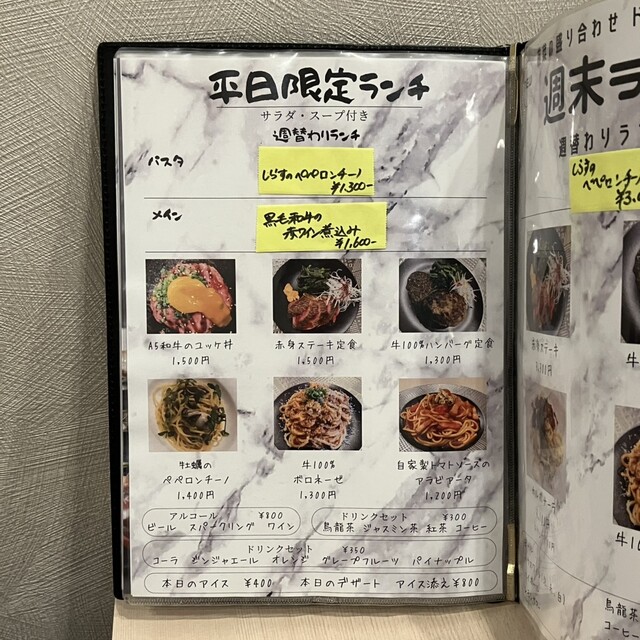 平日限定ランチ
サラダ・スープ付き
週替わりランチ
パスタ
しらすのペペロンチーノ
¥1,300-
メイン
黒毛和牛の
赤ワイン煮込み
¥1,600-
A5和牛のユッケ丼
1,500円
赤身ステーキ定食
1,500円
牛100%ハンバーグ定食
1,300円
牡蠣の
ペペロンチーノ
1,400円
牛100%
ボロネーゼ
1,300円
自家製トマトソースの
アラビアータ
1,200円
アルコール ¥800
ビール スパークリング ワイン
ドリンクセット ¥300
烏龍茶 ジャスミン茶 紅茶 コーヒー
ドリンクセット ¥350
コーラ ジンジャエール オレンジ グレープフルーツ パイナップル
本日のアイス ¥400 本日のデザート アイス添え ¥800
盛り合わせ
週末ラ
週替わりラン
しらすの
赤身ステーキ
牛1
烏龍茶
コーヒ